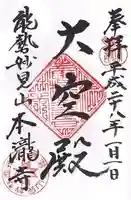 奉拝
平成二八年一月一日
大空殿
能勢妙見山 本瀧寺